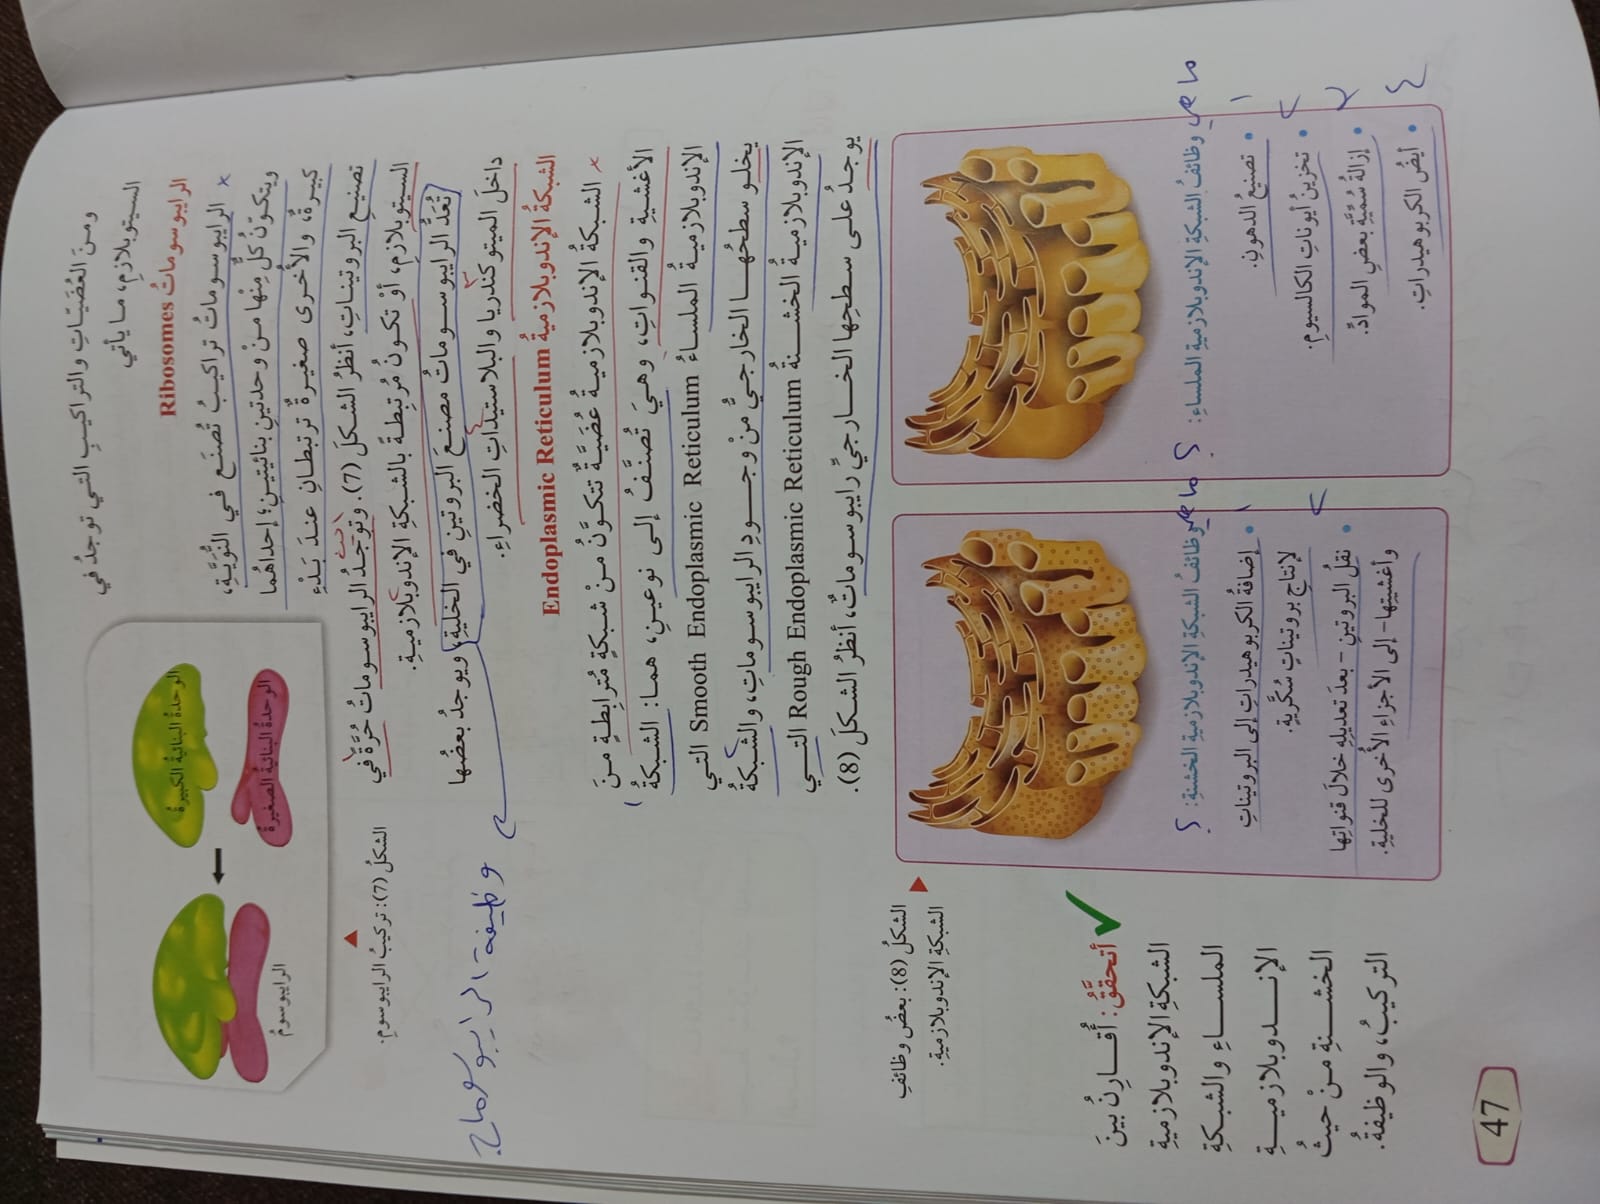 ومنَ العُضَيّاتِ والتراكيبِ التي توجدُ في
السيتوبلازمِ، ما يأتي
الرايبوسوماتُ Ribosomes
× الرايبوسوماتُ تراكيبُ تُصنَع في النُّوَيَّةِ،
ويتكوَّنُ كُلٌّ منْها منْ وحدتينِ بنائيتينِ؛ إحداهُما
كبيرةٌ، والأُخرى صغيرةٌ ترتبطانِ عندَ بَدْءِ
تصنيعِ البروتيناتِ، أنظرُ الشكلَ (7). وتوجَدُ الرايبوسوماتُ حُرَّةً في
السيتوبلازمِ، أوْ تكونُ مُرتبِطةً بالشبكةِ الإندوبلازميةِ.
تُعَدُّ الرايبوسوماتُ مصنعَ البروتينِ في الخليةِ، ويوجدُ بعضُها
داخلَ الميتوكندريا والبلاستيداتِ الخضراءِ.
وظيفة الرايبوسومات
الوحدةُ البنائيةُ الكبيرةُ
الوحدةُ البنائيةُ الصغيرةُ
الرايبوسومُ
الشكلُ (7): تركيبُ الرايبوسومِ.
الشبكةُ الإندوبلازميةُ Endoplasmic Reticulum
× الشبكةُ الإندوبلازميةُ عُضَيَّةٌ تتكوَّنُ منْ شبكةٍ مُترابِطةٍ منَ
الأغشيةِ والقنواتِ، وهيَ تُصنَّفُ إلى نوعينِ، هما: الشبكةُ
الإندوبلازميةُ الملساءُ Smooth Endoplasmic Reticulum التي
يخلو سطحُها الخارجيُّ منْ وجودِ الرايبوسوماتِ، والشبكةُ
الإندوبلازميةُ الخشنةُ Rough Endoplasmic Reticulum التي
يوجدُ على سطحِها الخارجيِّ رايبوسوماتٌ، أنظرُ الشكلَ (8).
ما هي وظائفُ الشبكةِ الإندوبلازميةِ الملساءِ: ؟
1 • تصنيعُ الدهونِ.
2 • تخزينُ أيوناتِ الكالسيومِ.
3 • إزالةُ سُمِّيَّةِ بعضِ الموادِّ.
4 • أيضُ الكربوهيدراتِ.
ما هي وظائفُ الشبكةِ الإندوبلازميةِ الخشنةِ: ؟
1 • إضافةُ الكربوهيدراتِ إلى البروتيناتِ
لإنتاجِ بروتيناتٍ سُكَّريةٍ.
2 • نقلُ البروتينِ - بعدَ تعديلِهِ خلالَ قنواتِها
وأغشيتِها- إلى الأجزاءِ الأُخرى للخليةِ.
الشكلُ (8): بعضُ وظائفِ
الشبكةِ الإندوبلازميةِ.
أتحقَّقُ: أُقارِنُ بينَ
الشبكةِ الإندوبلازميةِ
الملساءِ والشبكةِ
الإندوبلازميةِ
الخشنةِ منْ حيثُ
التركيبُ، والوظيفةُ.
47